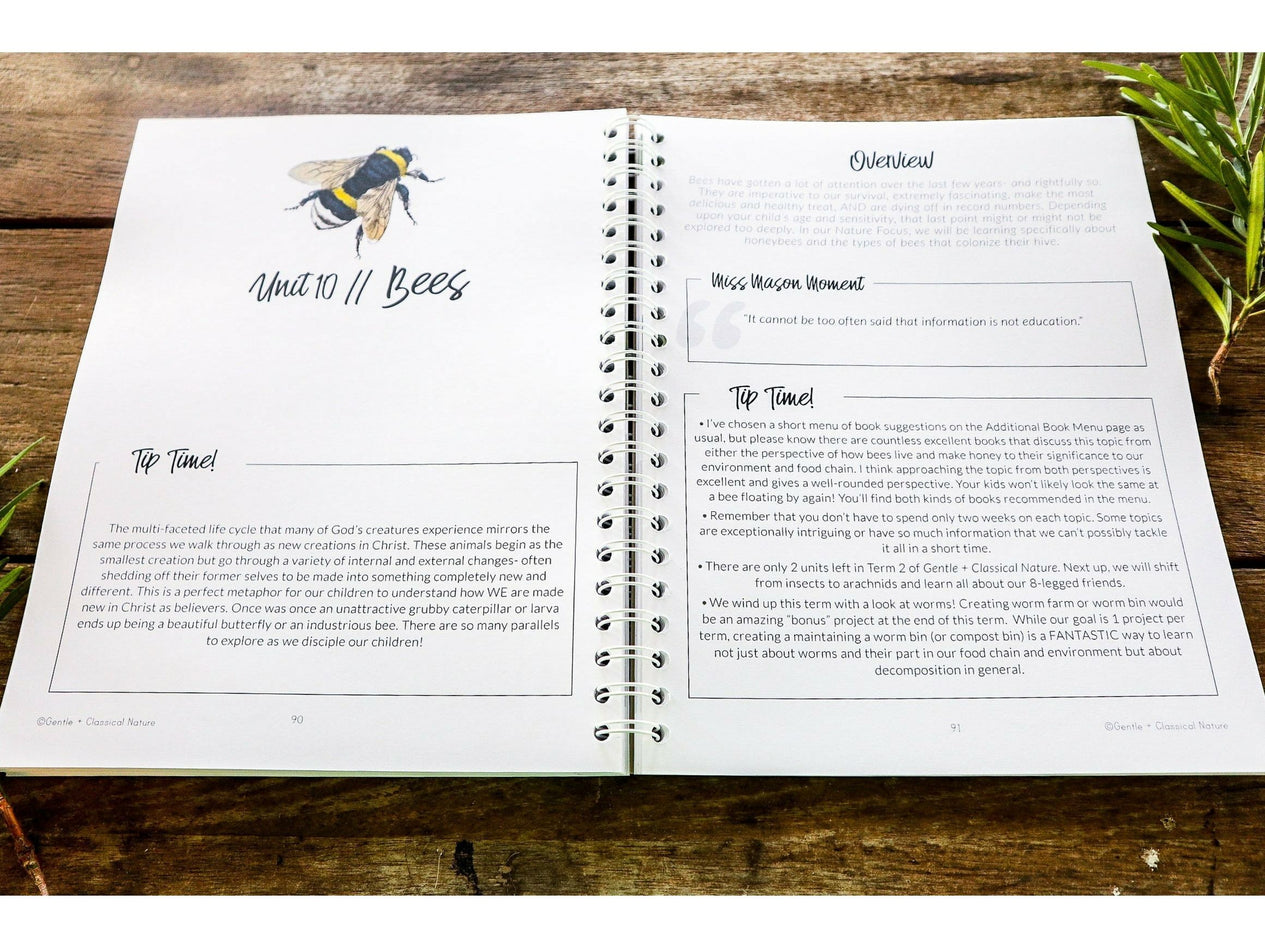 Unit 10 // Bees
Tip Time!
The multi-faceted life cycle that many of God's creatures experience mirrors the
same process we walk through as new creations in Christ. These animals begin as the
smallest creation but go through a variety of internal and external changes- often
shedding off their former selves to be made into something completely new and
different. This is a perfect metaphor for our children to understand how WE are made
new in Christ as believers. Once was once an unattractive grubby caterpillar or larva
ends up being a beautiful butterfly or an industrious bee. There are so many parallels
to explore as we disciple our children!
©Gentle + Classical Nature
90
Overview
Bees have gotten a lot of attention over the last few years- and rightfully so.
They are imperative to our survival, extremely fascinating, make the most
delicious and healthy treat, AND are dying off in record numbers. Depending
upon your child's age and sensitivity, that last point might or might not be
explored too deeply. In our Nature Focus, we will be learning specifically about
honeybees and the types of bees that colonize their hive.
Miss Mason Moment
"It cannot be too often said that information is not education."
Tip Time!
• I've chosen a short menu of book suggestions on the Additional Book Menu page as
usual, but please know there are countless excellent books that discuss this topic from
either the perspective of how bees live and make honey to their significance to our
environment and food chain. I think approaching the topic from both perspectives is
excellent and gives a well-rounded perspective. Your kids won't likely look the same at
a bee floating by again! You'll find both kinds of books recommended in the menu.
• Remember that you don't have to spend only two weeks on each topic. Some topics
are exceptionally intriguing or have so much information that we can't possibly tackle
it all in a short time.
• There are only 2 units left in Term 2 of Gentle + Classical Nature. Next up, we will shift
from insects to arachnids and learn all about our 8-legged friends.
• We wind up this term with a look at worms! Creating worm farm or worm bin would
be an amazing "bonus" project at the end of this term. While our goal is 1 project per
term, creating a maintaining a worm bin (or compost bin) is a FANTASTIC way to learn
not just about worms and their part in our food chain and environment but about
decomposition in general.
91
©Gentle + Classical Nature